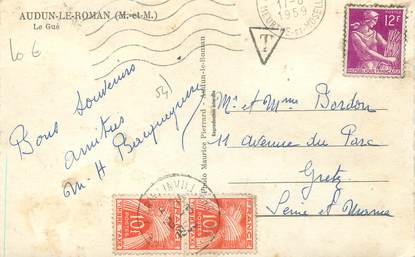 AUDUN-LE-ROMAN (M.-et-M.)
Le Gué
10 €
(54)
Bons souvenirs
amitiés
M. H
Photo Maurice Pierrard - Audun-le-Roman
Reproduction interdite
1959
T
12F
Mr et Mme Bordon
11 avenue du Parc
Gretz
Seine et Marne
10F
FRANCE
10F
FRANCE